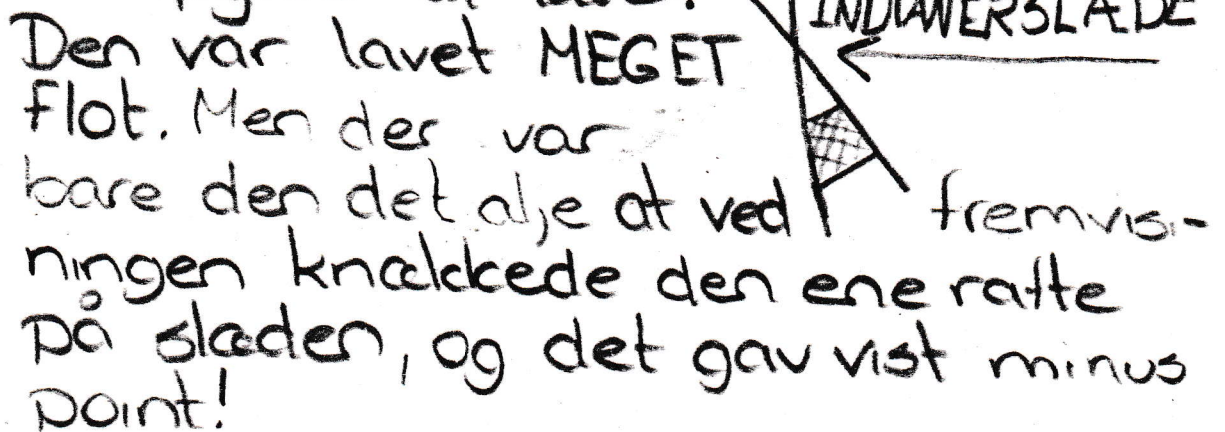 INDIANERSLÆDE
Den var lavet MEGET
flot. Men der var
bare den detalje at ved fremvisi-
ningen knækkede den ene rafte
på slæden, og det gav vist minus
point!